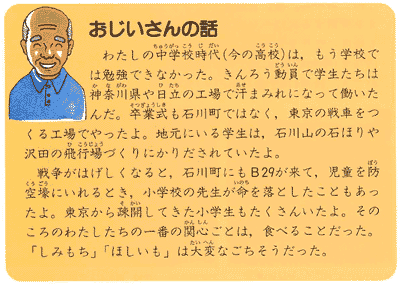 おじいさんの話
わたしの中学校時代(今の高校)は，もう学校で
は勉強できなかった。きんろう動員で学生たちは
神奈川県や日立の工場で汗まみれになって働いた
んだ。卒業式も石川町ではなく，東京の戦車をつ
くる工場でやったよ。地元にいる学生は，石川山の石ほりや
沢田の飛行場づくりにかりだされていたよ。
戦争がはげしくなると，石川町にもB29が来て，児童を防
空壕にいれるとき，小学校の先生が命を落としたこともあっ
たよ。東京から疎開してきた小学生もたくさんいたよ。その
ころのわたしたちの一番の関心ごとは，食べることだった。
「しみもち」「ほしいも」は大変なごちそうだった。